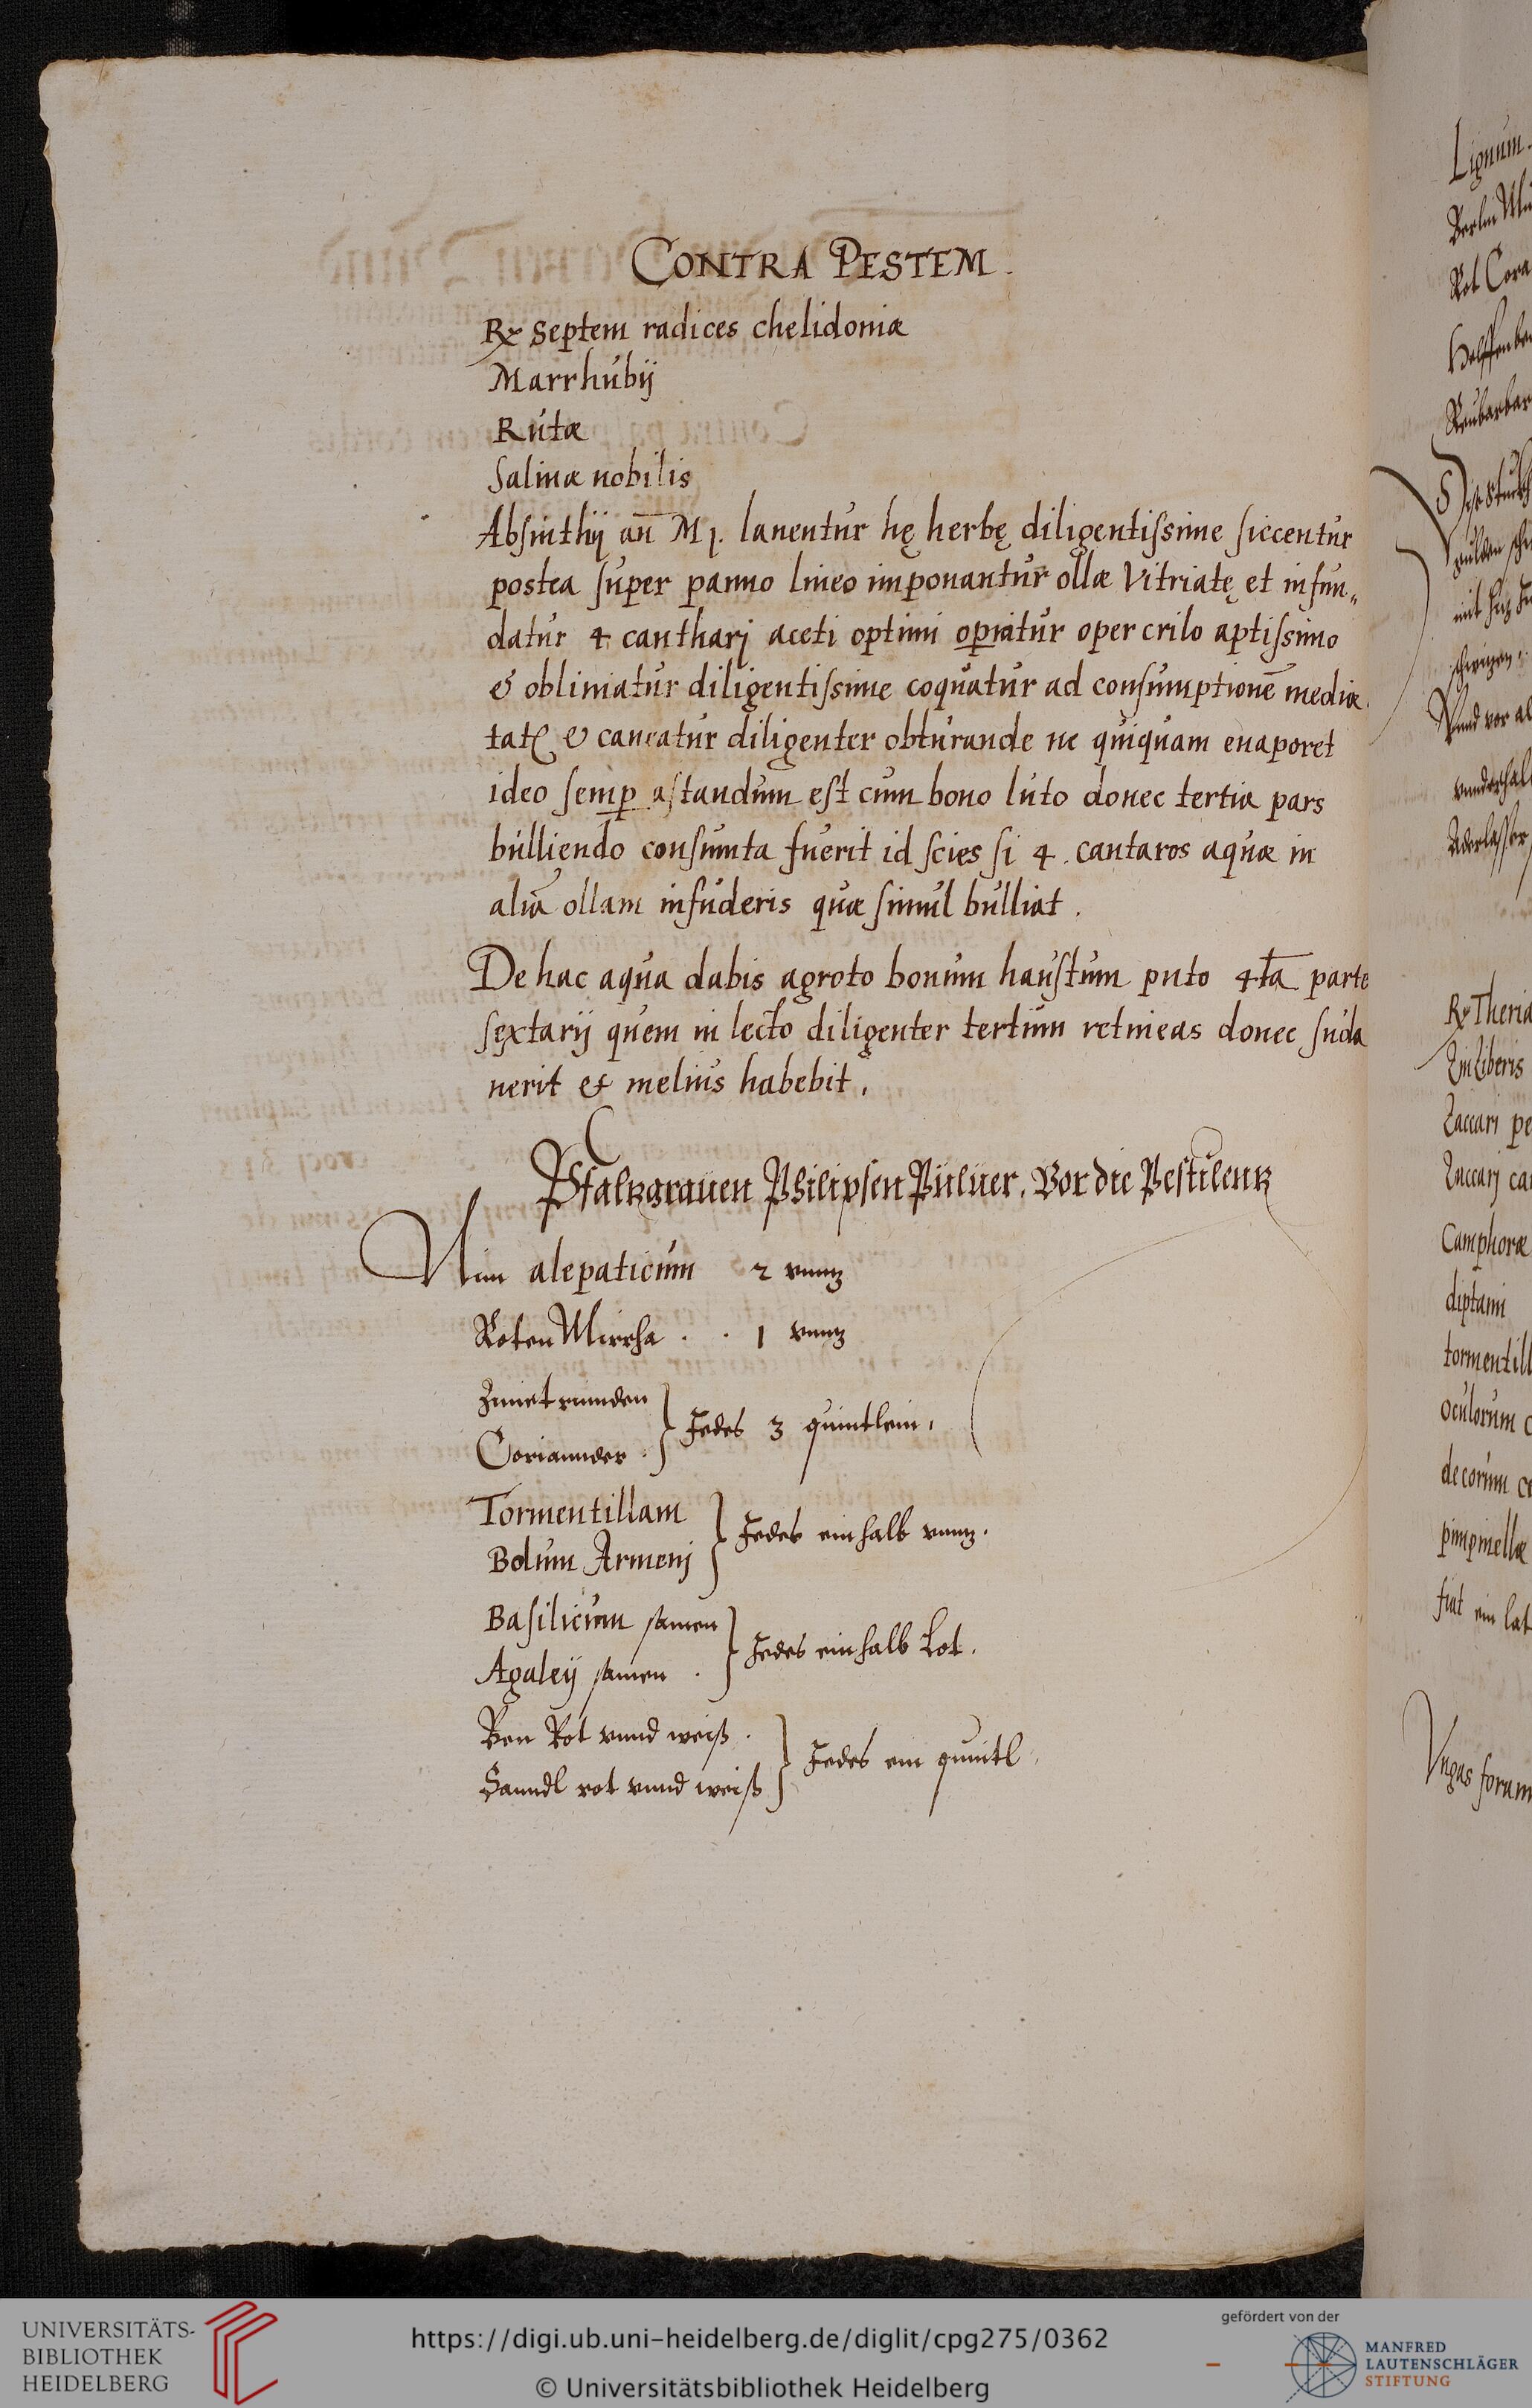 CONTRA PESTEM.
℞ septem radices chelidoniæ
Marrhubij
Rutæ
Saluiæ nobilis
Absinthij an̄ M j. lauentur hę herbę diligentissime siccentur
postea super panno lineo imponantur ollæ Vitriatę et infun„
datur 4 cantharj aceti optimi operiatur opercrilo aptissimo
& obliniatur diligentissime coquatur ad consumptionē mediæ
tatꝭ & caueatur diligenter obturande ne quiquam euaporet
ideo semp astandum est cum bono luto donec tertia pars
bulliendo consumta fuerit id scies si 4. cantaros aquæ in
aliā ollam infuderis quæ simul bulliat.
De hac aqua dabis agroto bonum haustum puto 4tā parte
sextarij quem in lecto diligenter tertium retineas donec suda
uerit & melius habebit.
Pfaltzgrauen Philipsen Puluer. Vor die Pestilentz
Nim alepaticum 2 vnntz
Roten Mirrha . . 1 vnntz
Zimetrinnden
Coriannder . } Jedes 3 quintlein.
Tormentillam
Bolum Armenj } Jedes ein halb vnntz.
Basilicum samen
Agaleÿ samen . } Jedes ein halb Lot.
Ben Rot vnnd weiß .
Sanndl rot vnnd weiß } Jedes ein quintl.
Lignum
Rot Cora
Helffenbe
Reubarbar
mit
schwitzen
Vnnd vor al
Aderlasser
℞ Theria
Zinziberis
Zaccari pe
Zuccarj ca
Camphoræ
diptami
tormentill
oculorum c
de corum c
pimpinellæ
fiat ein lat
Vngas forum
UNIVERSITÄTS-
BIBLIOTHEK
HEIDELBERG
https://digi.ub.uni-heidelberg.de/diglit/cpg275/0362
© Universitätsbibliothek Heidelberg
gefördert von der
MANFRED
LAUTENSCHLÄGER
STIFTUNG